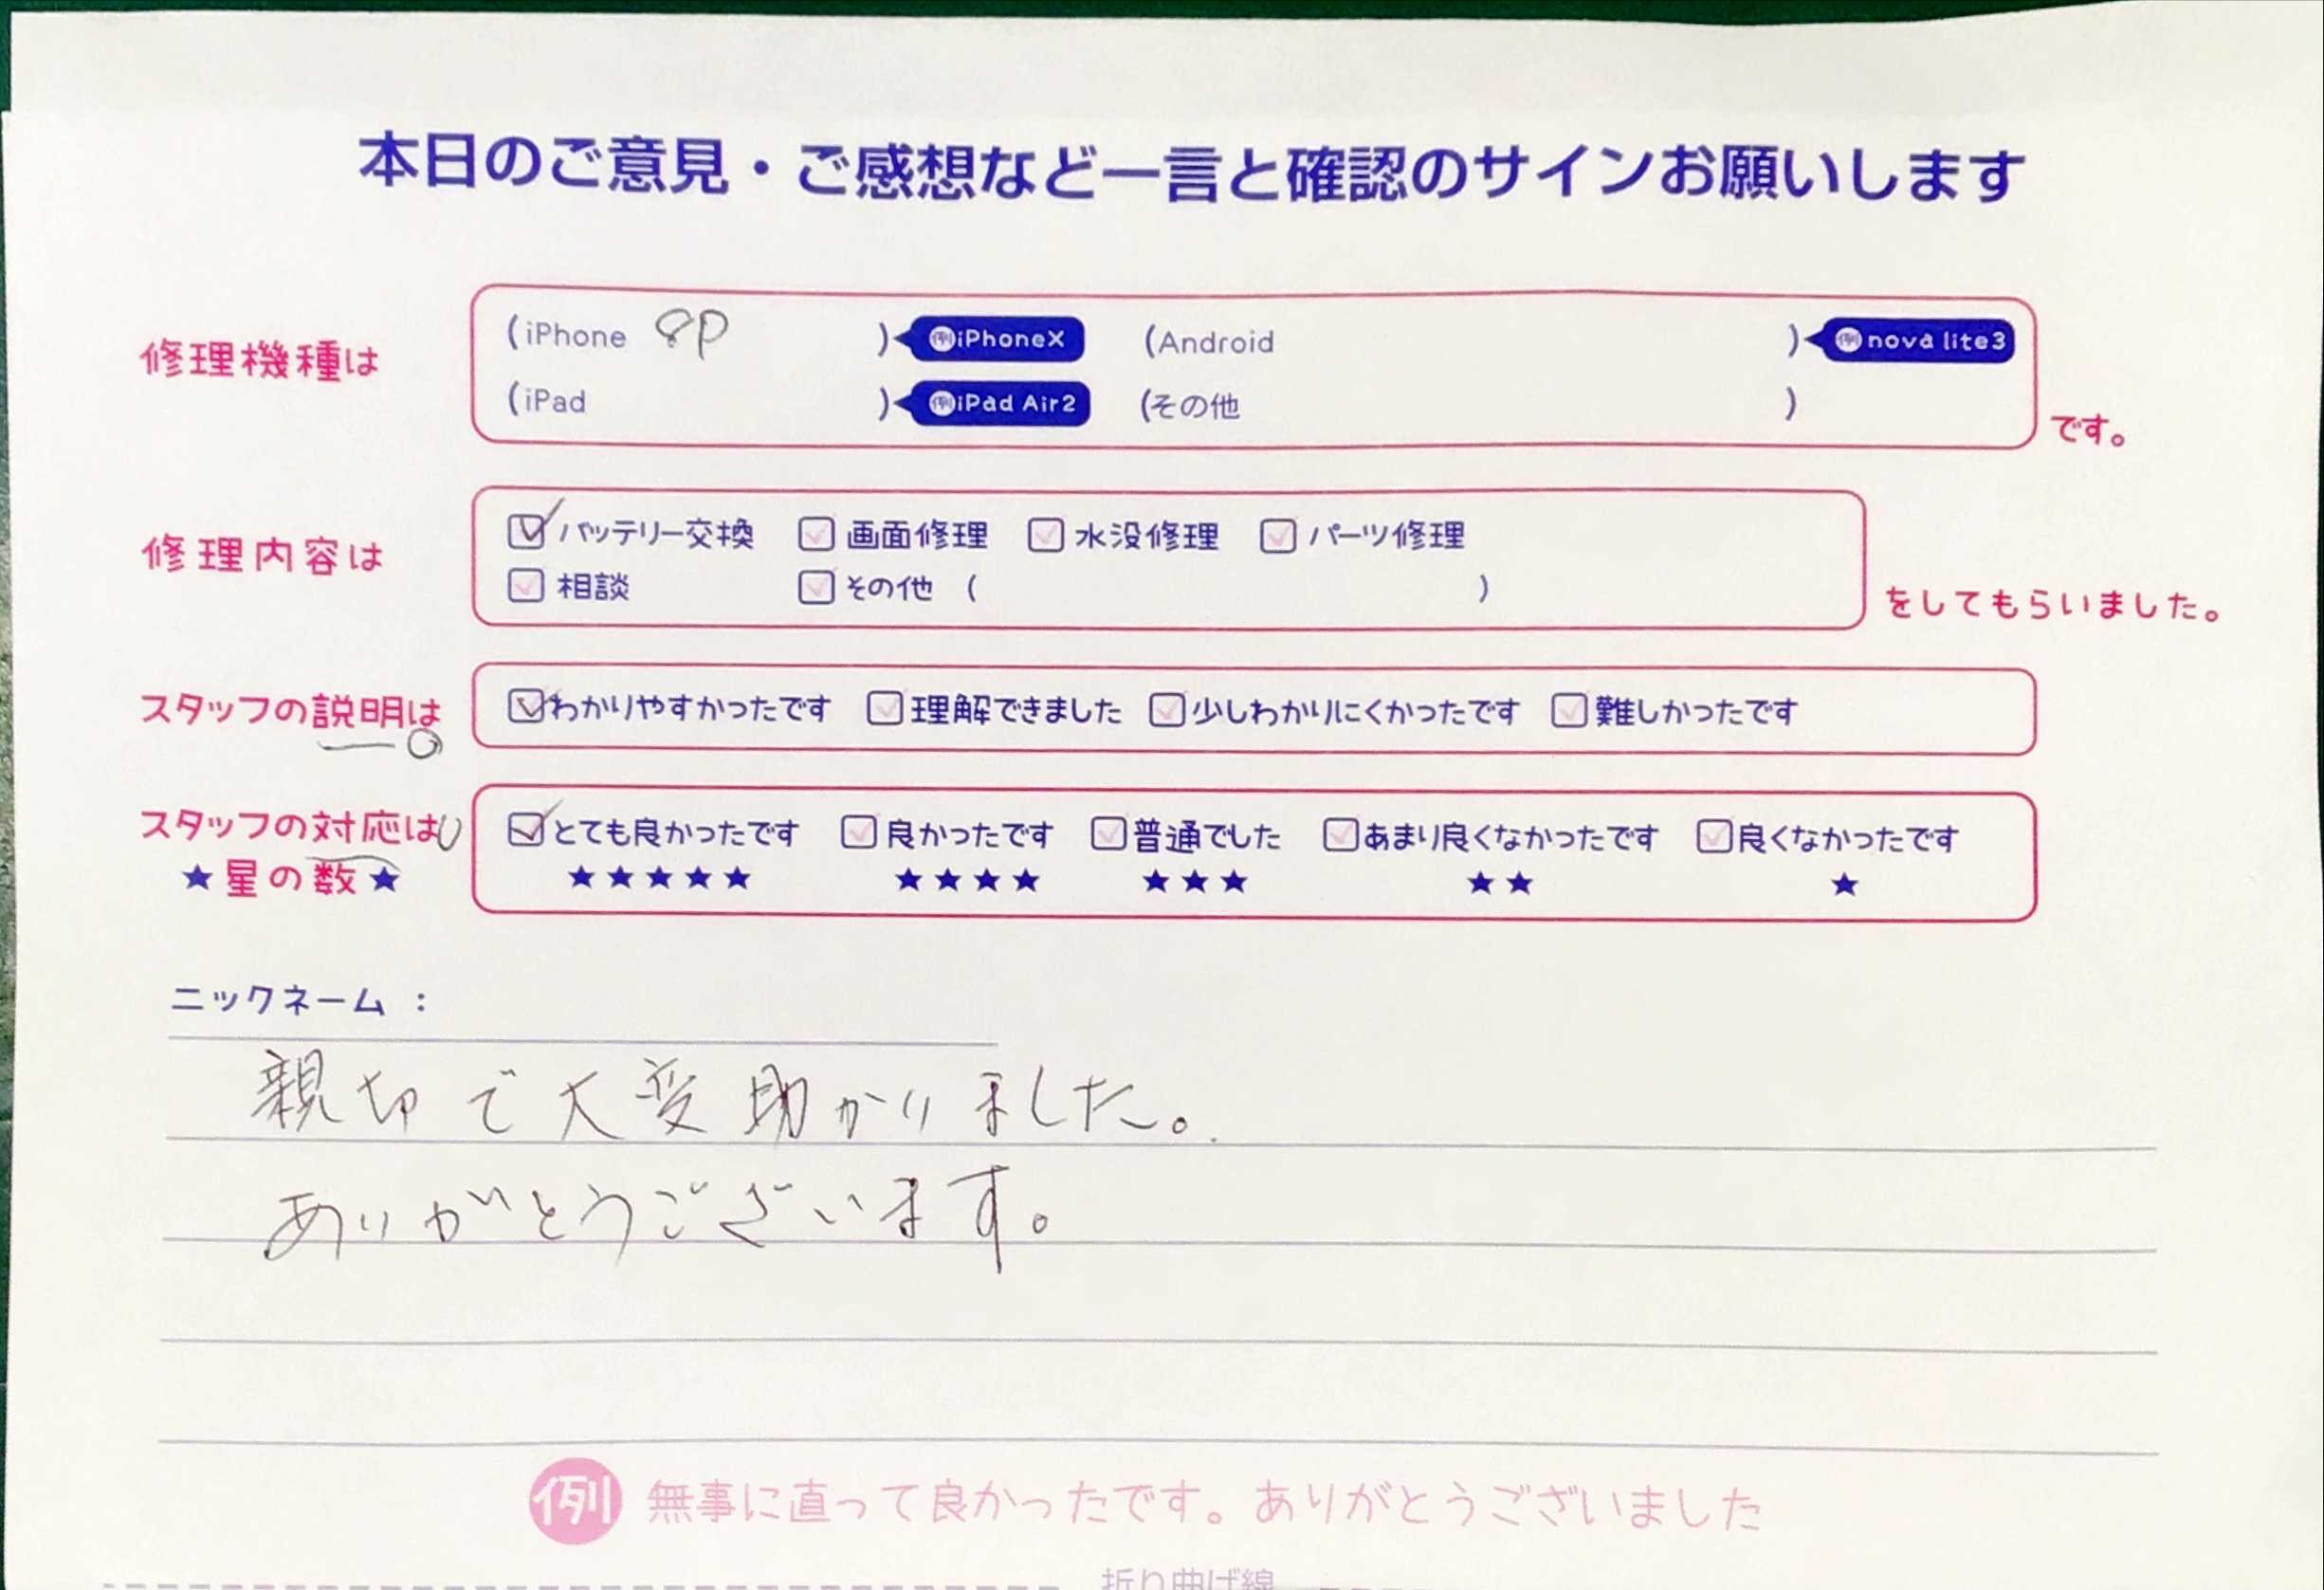 本日のご意見・ご感想など一言と確認のサインお願いします
修理機種は
(iPhone 8P ) 例iPhoneX (Android ) 例nova lite3
(iPad ) 例iPad Air2 (その他 )
です。
修理内容は
バッテリー交換 画面修理 水没修理 パーツ修理
相談 その他 ( )
をしてもらいました。
スタッフの説明は
わかりやすかったです 理解できました 少しわかりにくかったです 難しかったです
スタッフの対応は
とても良かったです 良かったです 普通でした あまり良くなかったです 良くなかったです
★星の数★ ★★★★★ ★★★★ ★★★ ★★ ★
ニックネーム :
親切で大変助かりました。
ありがとうございます。
例 無事に直って良かったです。ありがとうございました
折り曲げ線